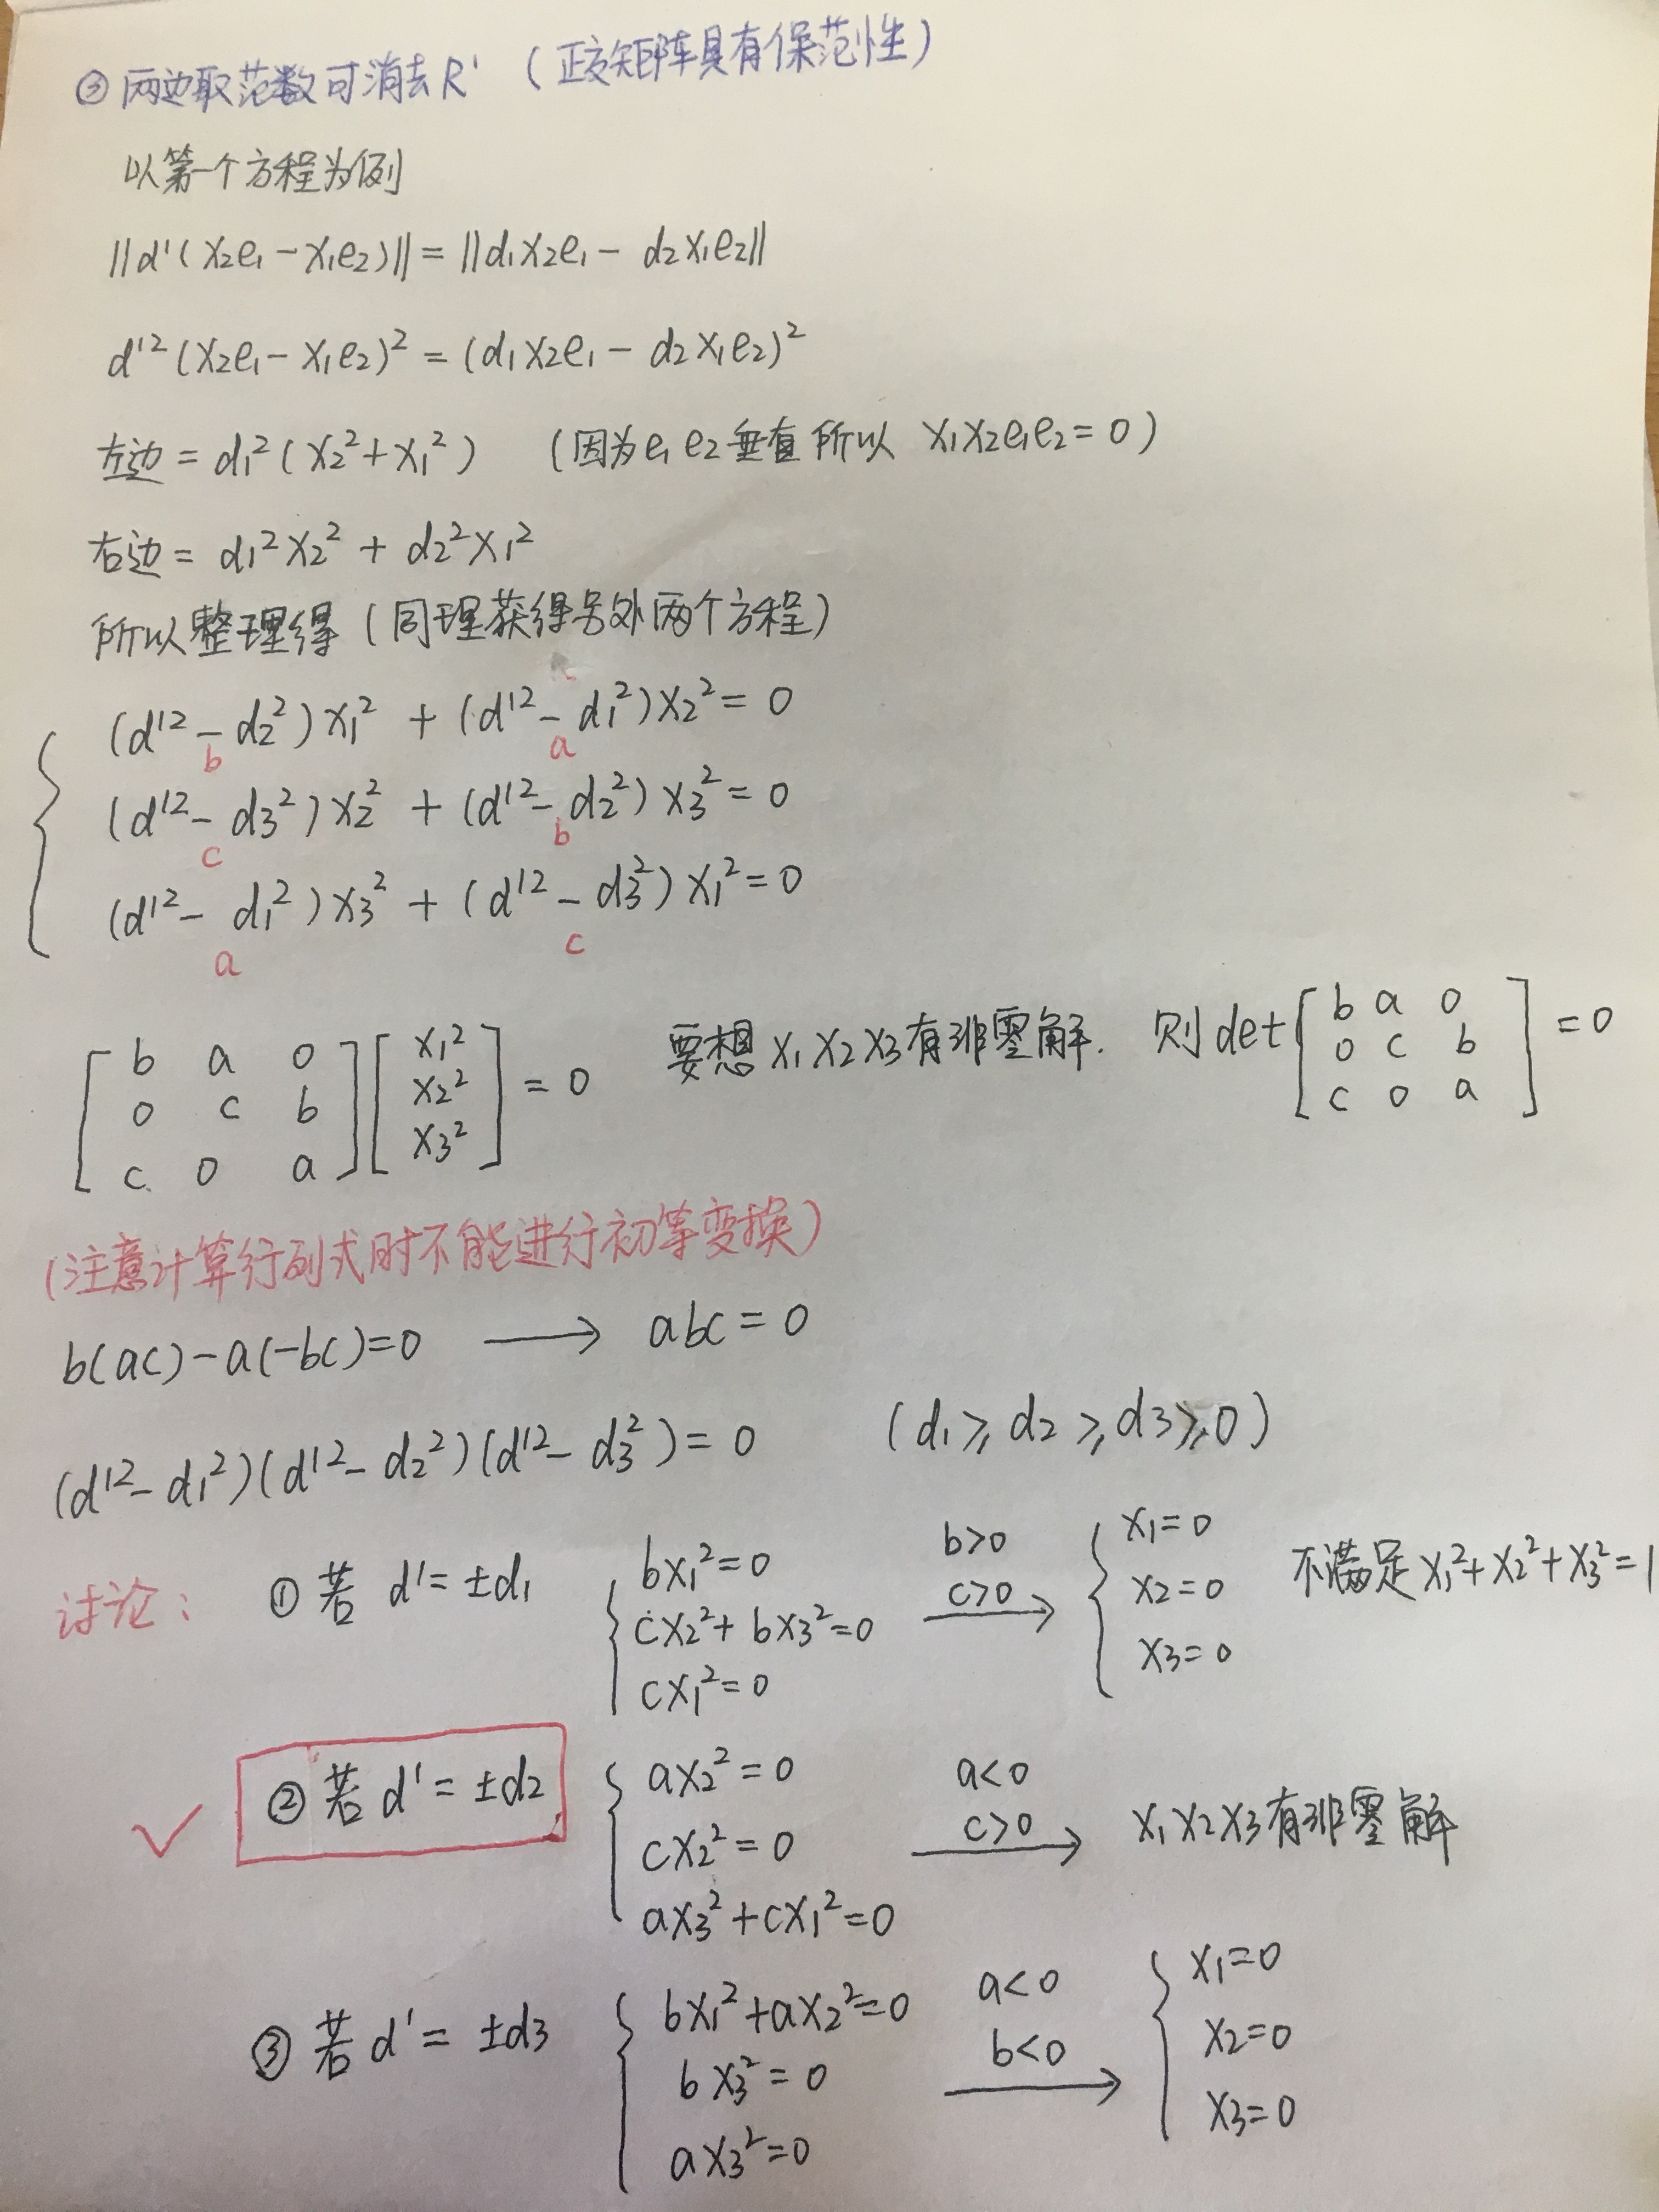 ③ 两边取范数可消去R' (正交矩阵具有保范性)
以第一个方程为例
||d'(x₂e₁-x₁e₂)|| = ||d₁x₂e₁ - d₂x₁e₂||
d'²(x₂e₁-x₁e₂)² = (d₁x₂e₁ - d₂x₁e₂)²
左边 = d₁²(x₂²+x₁²) (因为e₁e₂垂直所以 x₁x₂e₁e₂=0)
右边 = d₁²x₂² + d₂²x₁²
所以整理得(同理获得另外两个方程)
(d'²-d₂²)x₁² + (d'²-d₁²)x₂² = 0
b a
(d'²-d₃²)x₂² + (d'²-d₂²)x₃² = 0
c b
(d'²-d₁²)x₃² + (d'²-d₃²)x₁² = 0
a c
[b a 0; 0 c b; c 0 a][x₁²; x₂²; x₃²] = 0 要想x₁x₂x₃有非零解. 则det[b a 0; 0 c b; c 0 a] = 0
(注意计算行列式时不能进行初等变换)
b(ac)-a(-bc)=0 ⟶ abc=0
(d'²-d₁²)(d'²-d₂²)(d'²-d₃²)=0 (d₁≥d₂≥d₃≥0)
讨论: ① 若 d'=±d₁ { bx₁²=0 b>0 { x₁=0 不满足x₁²+x₂²+x₃²=1
cx₂²+bx₃²=0 c>0 ⟶ x₂=0
cx₁²=0 x₃=0
✓ ② 若 d'=±d₂ { ax₂²=0 a<0
cx₂²=0 c>0 ⟶ x₁x₂x₃有非零解
ax₃²+cx₁²=0
③ 若 d'=±d₃ { bx₁²+ax₂²=0 a<0 { x₁=0
bx₃²=0 b<0 ⟶ x₂=0
ax₃²=0 x₃=0